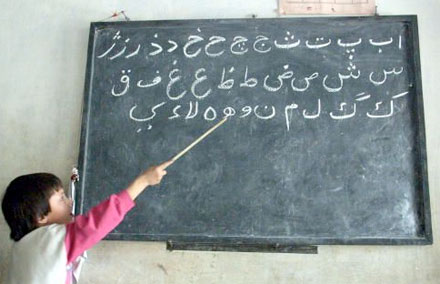 ا ب پ ت ث ج چ ح خ د ذ ر ز ژ
س ش ص ض ط ظ ع غ ف ق
ک گ ل م ن و ه ه لا ء ی